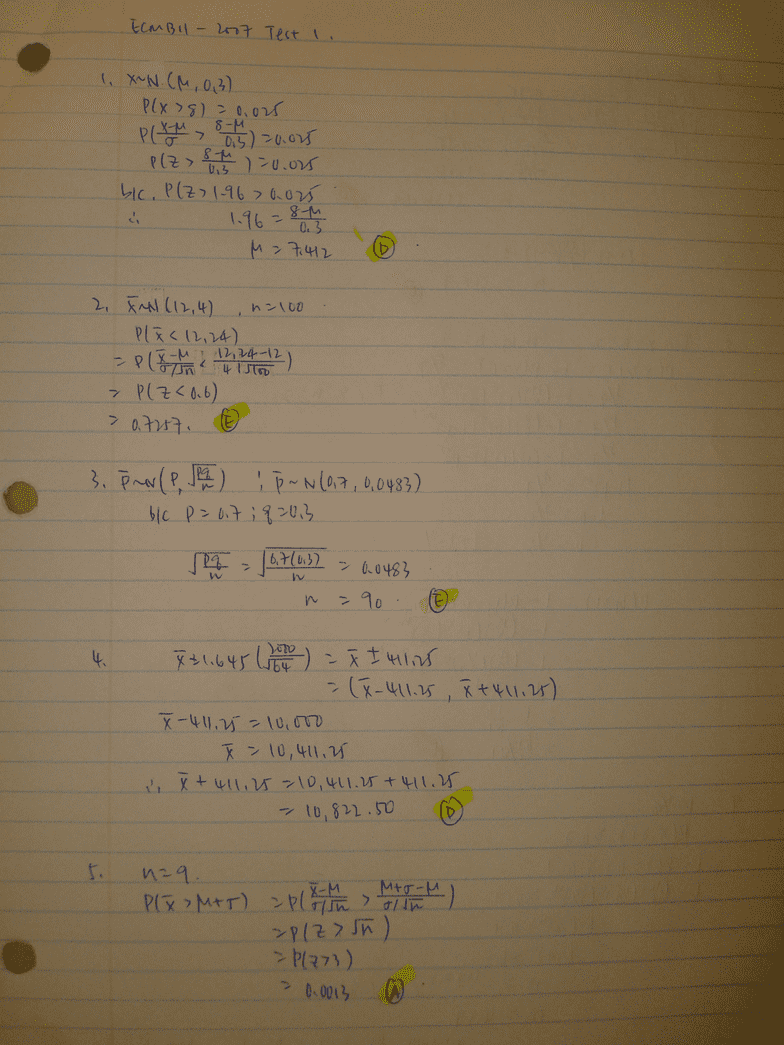 ECMB11 - 2007 Test 1.
1. X~N(μ, 0.3)
P(X > 8) = 0.025
P(\frac{X-μ}{σ} > \frac{8-μ}{0.3}) = 0.025
P(Z > \frac{8-μ}{0.3}) = 0.025
b/c. P(Z > 1.96 > 0.025
∴ 1.96 = \frac{8-μ}{0.3}
μ = 7.412 (D)
2. x̄~N(12, 4), n=100
P(x̄ < 12.24)
= P(\frac{x̄-μ}{σ/√n} < \frac{12.24-12}{4/√100})
= P(Z < 0.6)
= 0.7257. (E)
3. p̄~N(P, \sqrt{\frac{pq}{n}}) ; p̄~N(0.7, 0.0483)
b/c P = 0.7 ; q = 0.3
\sqrt{\frac{pq}{n}} = \sqrt{\frac{0.7(0.3)}{n}} = 0.0483
n = 90. (E)
4. x̄ ± 1.645 (\frac{2000}{√64}) = x̄ ± 411.25
= (x̄ - 411.25, x̄ + 411.25)
x̄ - 411.25 = 10,000
x̄ = 10,411.25
∴ x̄ + 411.25 = 10,411.25 + 411.25
= 10,822.50 (D)
5. n = 9.
P(x̄ > μ+σ) = P(\frac{x̄-μ}{σ/√n} > \frac{μ+σ-μ}{σ/√n})
= P(Z > √n)
= P(Z > 3)
= 0.0013 (A)